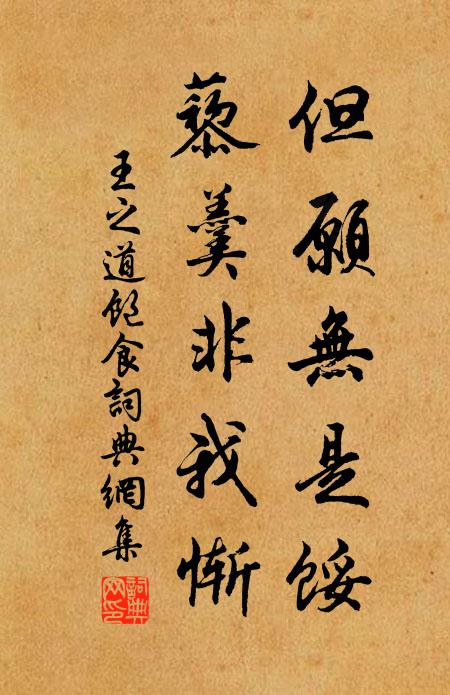 但願無是餒
藜羹非我慚
王之道飽食詞典網集
詞典网印